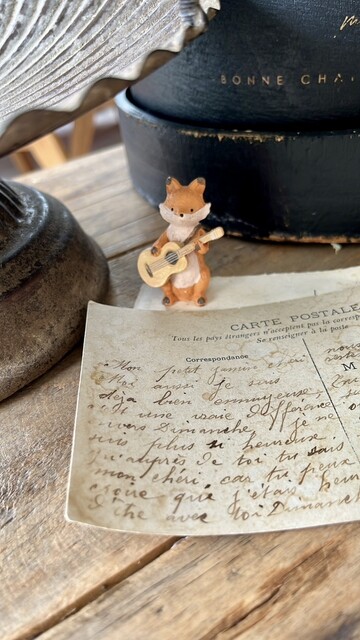 BONNE CHA
CARTE POSTALE
Tous les pays étrangers n'acceptent pas la corresp
Se renseigner à la poste
Correspondance
Mon petit
Moi aussi je suis
déja bien ennuyeuse,
une vraie différence
vers Dimanche, je ne
suis plus si heureuse.
auprès de toi tu sais
mon chéri, car tu peux
croire que j'étais heu
d'être avec toi Dimanc